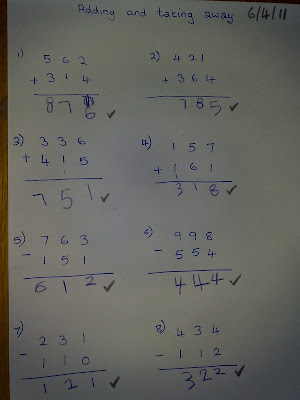 Adding and taking away 6/4/11
1) 562
+ 314
876 ✓
2) 421
+ 364
785 ✓
3) 336
+ 415
1
751 ✓
4) 157
+ 161
1
318 ✓
5) 763
- 151
612 ✓
6) 998
- 554
444 ✓
7) 231
- 110
121 ✓
8) 434
- 112
322 ✓